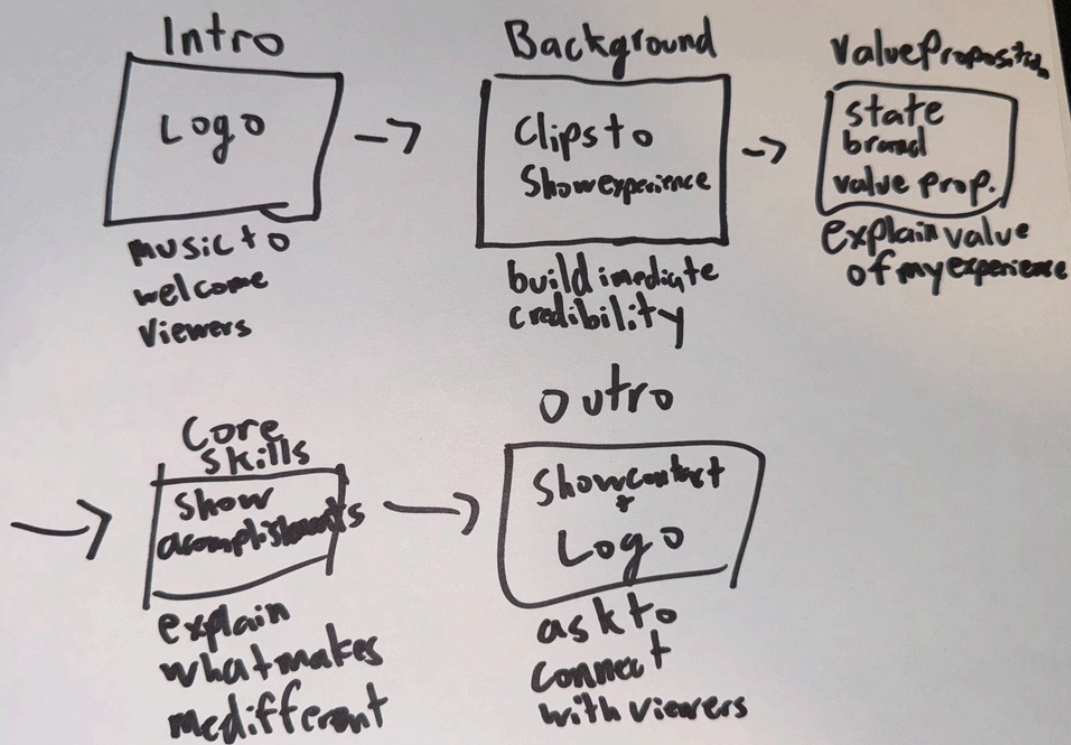 Intro
Logo
music to
welcome
viewers
Background
Clips to
Show experience
build imediate
credibility
Value Proposition
state
brand
value prop.
explain value
of my experience
Core
Skills
Show
acomplishments
explain
what makes
me different
Outro
Show contact
+
Logo
ask to
connect
with viewers